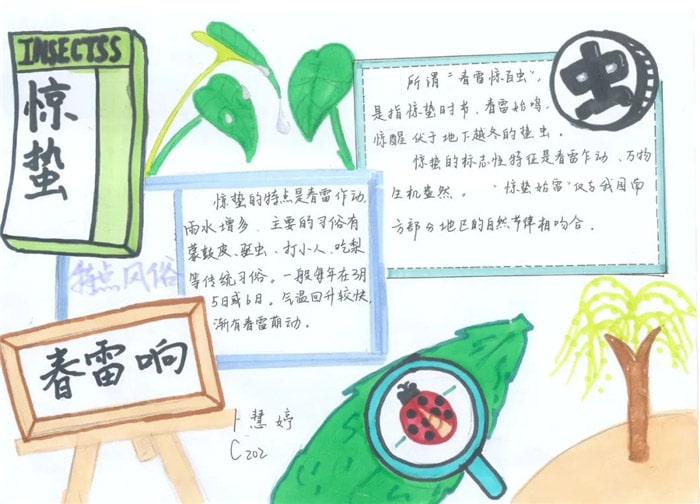 INSECTSS
惊蛰
所谓“春雷惊百虫”，
是指惊蛰时节，春雷始鸣，
惊醒伏于地下越冬的蛰虫。
惊蛰的标志性特征是春雷乍动、万物
生机盎然。“惊蛰始雷”仅与我国南
方部分地区的自然节律相吻合。
虫
惊蛰的特点是春雷乍动，
雨水增多，主要的习俗有
蒙鼓皮、驱虫、打小人、吃梨
等传统习俗。一般每年在3月
5日或6日。气温回升较快，
渐有春雷萌动。
特点风俗
春雷响
卜慧婷
C202